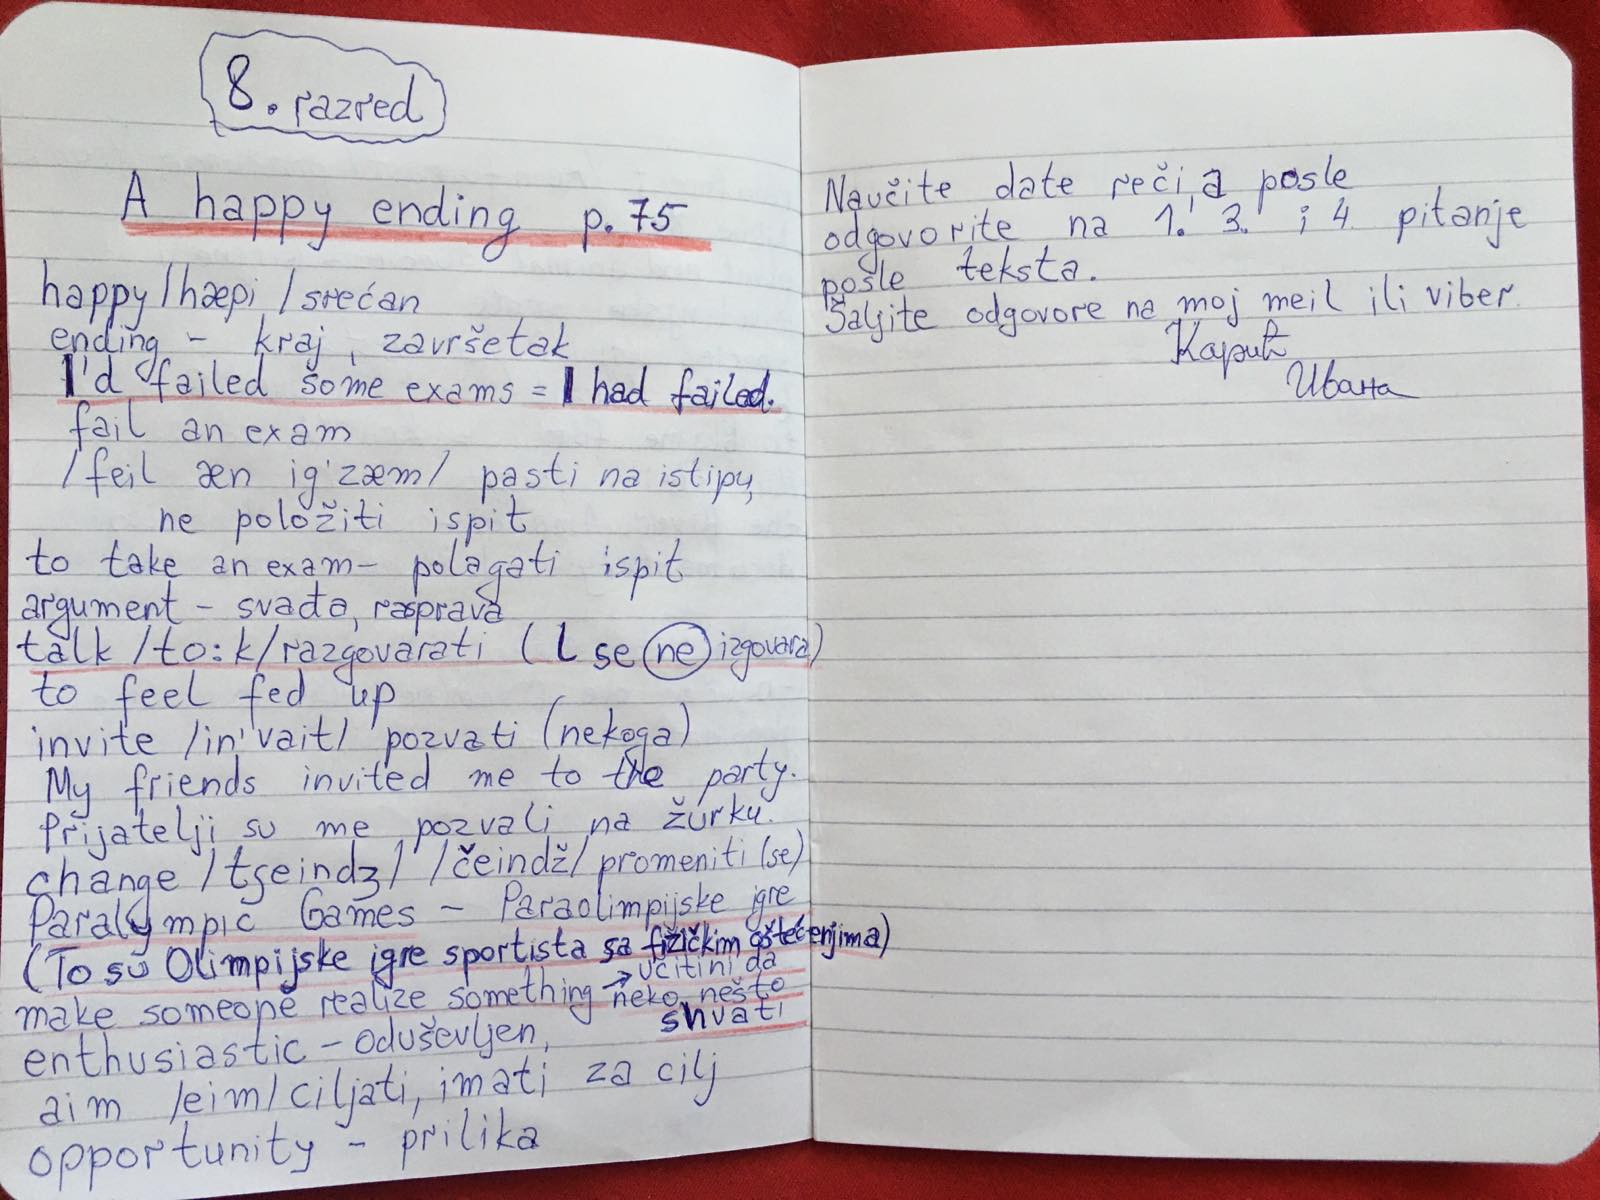 8. razred
A happy ending p. 75
happy /hæpi/ srećan
ending - kraj, završetak
I'd failed some exams = I had failed.
fail an exam
/feil æn ig'zæm/ pasti na istipu,
ne položiti ispit
to take an exam - polagati ispit
argument - svađa, rasprava
talk /to:k/ razgovarati (L se ne izgovara)
to feel fed up
invite /in'vait/ pozvati (nekoga)
My friends invited me to the party.
Prijatelji su me pozvali na žurku.
change /tʃeindʒ/ /čeindž/ promeniti (se)
Paralympic Games - Paraolimpijske igre
(To su Olimpijske igre sportista sa fizičkim oštećenjima)
make someone realize something → učitini da
neko nešto
shvati
enthusiastic - oduševljen,
aim /eim/ ciljati, imati za cilj
opportunity - prilika
Naučite date reči, a posle
odgovorite na 1. 3. i 4. pitanje
posle teksta.
Šaljite odgovore na moj meil ili viber.
Ивана